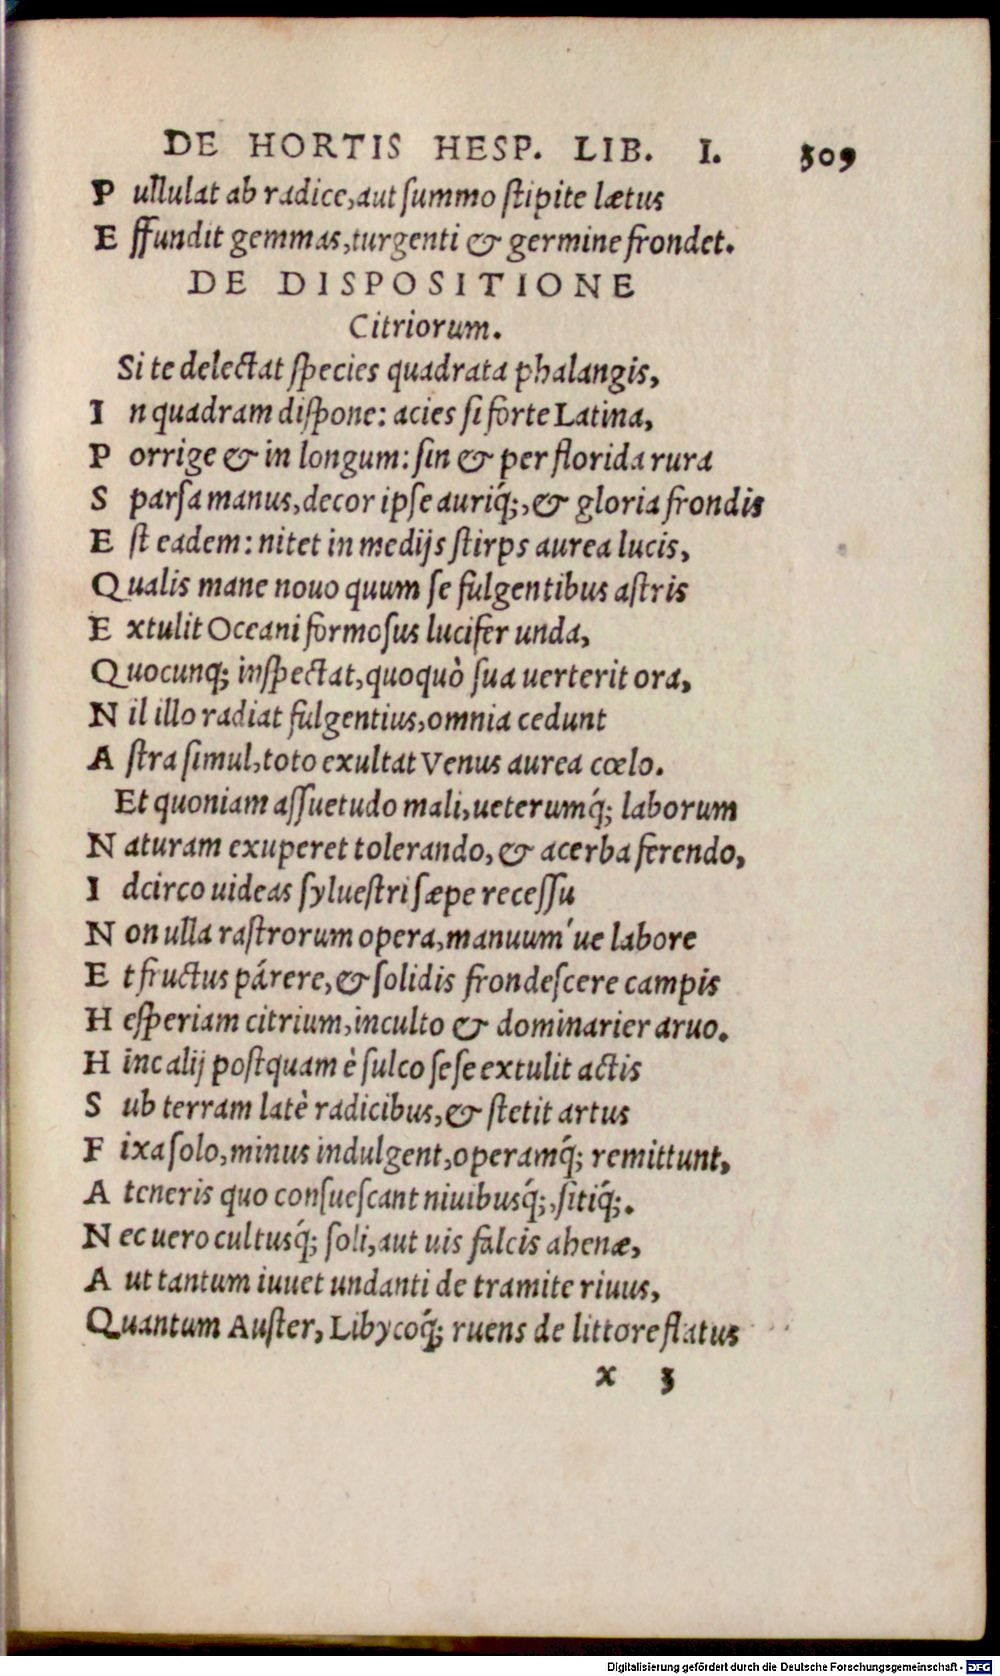 DE HORTIS HESP. LIB. I. 309
P ullulat ab radice, aut summo stipite lætus
E ffundit gemmas, turgenti & germine frondet.
DE DISPOSITIONE
Citriorum.
Si te delectat species quadrata phalangis,
I n quadram dispone: acies si forte Latina,
P orrige & in longum: sin & per florida rura
S parsa manus, decor ipse auriq́;, & gloria frondis
E st eadem: nitet in medijs stirps aurea lucis,
Qualis mane nouo quum se fulgentibus astris
E xtulit Oceani formosus lucifer unda,
Quocunq; inspectat, quoquò sua uerterit ora,
N il illo radiat fulgentius, omnia cedunt
A stra simul, toto exultat Venus aurea cœlo.
Et quoniam assuetudo mali, ueterumq́; laborum
N aturam exuperet tolerando, & acerba ferendo,
I dcirco uideas syluestri sæpe recessu
N on ulla rastrorum opera, manuum'ue labore
E t fructus párere, & solidis frondescere campis
H esperiam citrium, inculto & dominarier aruo.
H inc alij postquam è sulco sese extulit actis
S ub terram latè radicibus, & stetit artus
F ixa solo, minus indulgent, operamq́; remittunt,
A teneris quo consuescant niuibusq́;, sitiq́;.
N ec uero cultusq́; soli, aut uis falcis ahenæ,
A ut tantum iuuet undanti de tramite riuus,
Quantum Auster, Libycoq́; ruens de littore flatus
x 3
Digitalisierung gefördert durch die Deutsche Forschungsgemeinschaft - DFG